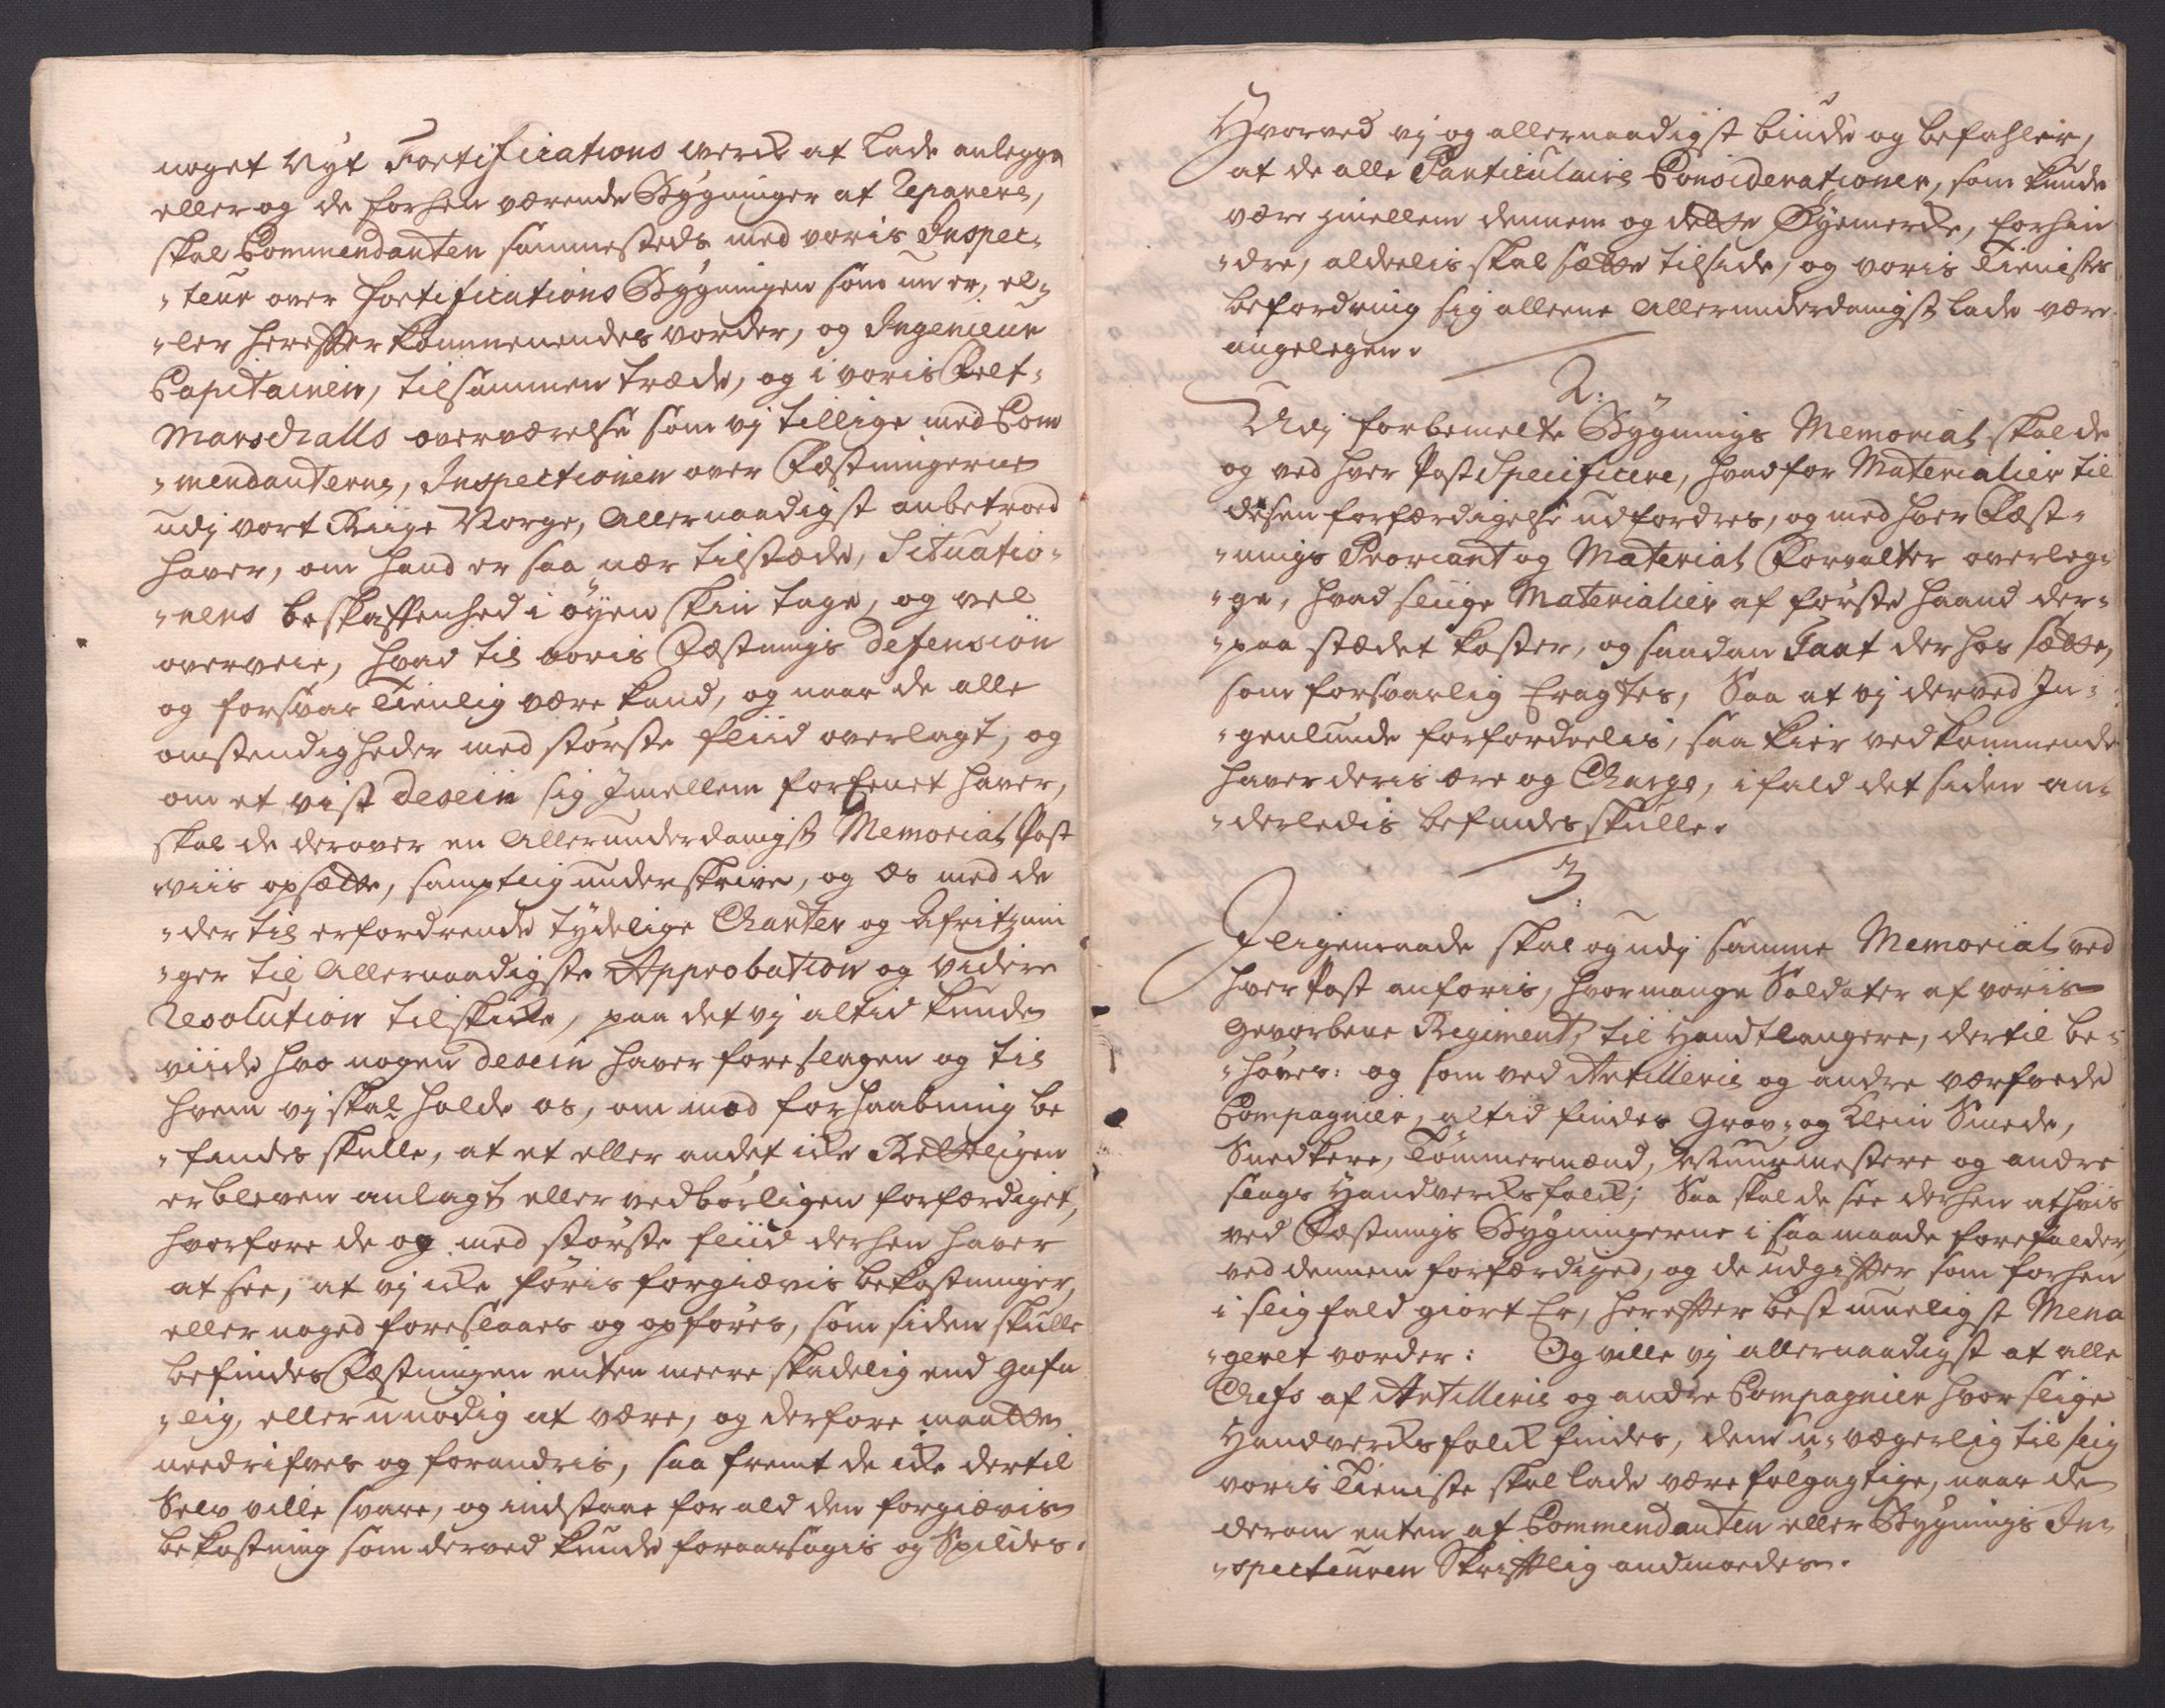 noget Nyt Fortifications werck at Lade anlegge
eller og de forhen værende Bygninger at Reparere,
skal Commendanten sammesteds med voris Inspec-
-teur over Fortifications Bygningen som nu er, el-
-ler herefter kommenendes vorder, og Ingenieur
Capitainen, tilsammen træde, og i voris Felt-
Marschalls overværelse som vj tillige med Com
-mendanterne, Inspectionen over Fæstningerne
udj vort Riige Norge, Allernaadigst anbetroed
haver, om hand er saa nær tilstæde, Situatio-
-nens beskaffenhed i øyen skin tage, og vel
overveie, hvad til voris Fæstnings defension
og forsvar Tienlig være kand, og naar de alle
omstendigheder med største fliid overlagt, og
om et vist desein sig Jmellem foreenet haver,
skal de derover en Allerunderdanigst Memorial Post
wiis opsætte, samptlig underskrive, og os med de
-der til erfordrende tydelige Charter og Afritznin
-ger til Allernaadigste Approbation og videre
Resolution tilskicke, paa det vj altid kunde
viide hvo nogen desein haver foreslagen og til
hvem vj skal holde os, om mod forhaabning be
-findes skulle, at et eller andet icke Retteligen
er bleven anlagt eller vedbørligen forfærdiget,
hvorfore de og med største fliid derhen haver
at see, at vj icke føris forgiævis bekostninger,
eller noged foreslaaes og opføres, som siden skulle
befindes Fæstningen enten meere skadelig end gafn
-lig, eller unødig at være, og derfore maatte
needrifves og forandris, saa fremt de icke dertil
Selv ville svare, og indstaae for ald den forgiævis
bekostning som derved kunde foraarsagis og Spildes.
Hvorved vj og allernaadigst biude og befahler,
at de alle Particulaire Considerationer, som kunde
være jmellem dennem og dette Øyemercke, forhin
-dre, aldeelis skal sætte tilside, og voris Tienistes
befordring sig alleene Allerunderdanigst lade være
angelegen.
2.
Udj forbemelte Bygnings Memorial skal de
og ved hver Post Specificere, hvad for Materialier til
desen forfærdigelse udfordres, og med hver Fæst-
-nings Proviant og Material Forvalter overleg-
-ge, hvad sliige Materialier af første haand der-
-paa stædet koster, og saadan Taxt der hos sætte,
som forsvarlig Eragtes, Saa at vj derved In-
-genlunde forfordeelis, saa kier vedkommende
haver deris ære og Charge, ifald det siden an-
-derledis befindes skulle.
3.
Jligemaade skal og udj samme Memorial ved
hver Post anføris, hvor mange Soldater af voris
gevorbene Regiment, til Handtlangere, dertil be-
-høves: og som ved Artillerie og andre værfvede
Compagnier, altid findes Grov- og Klein Smede,
Snedkere, Tømmermænd, Muurmestere og andre
slags Handvercksfolck; Saa skal de see derhen at hvis
ved Fæstnings Bygningerne i saa maade forefalder,
ved dennem forfærdiged, og de udgifter som forhen
i slig fald giort Er, herefter best muelig st Mena
-geret vorder: Og ville vj allernaadigst at alle
Chefs af Artillerie og andre Compagnier hvor slige
Handvercksfolck findes, dem u-vægerlig til slig
voris Tieniste skal lade være følgagtige, naar de
derom enten af Commendanten eller Bygnings In-
-specteuren Skriftlig andmodes.